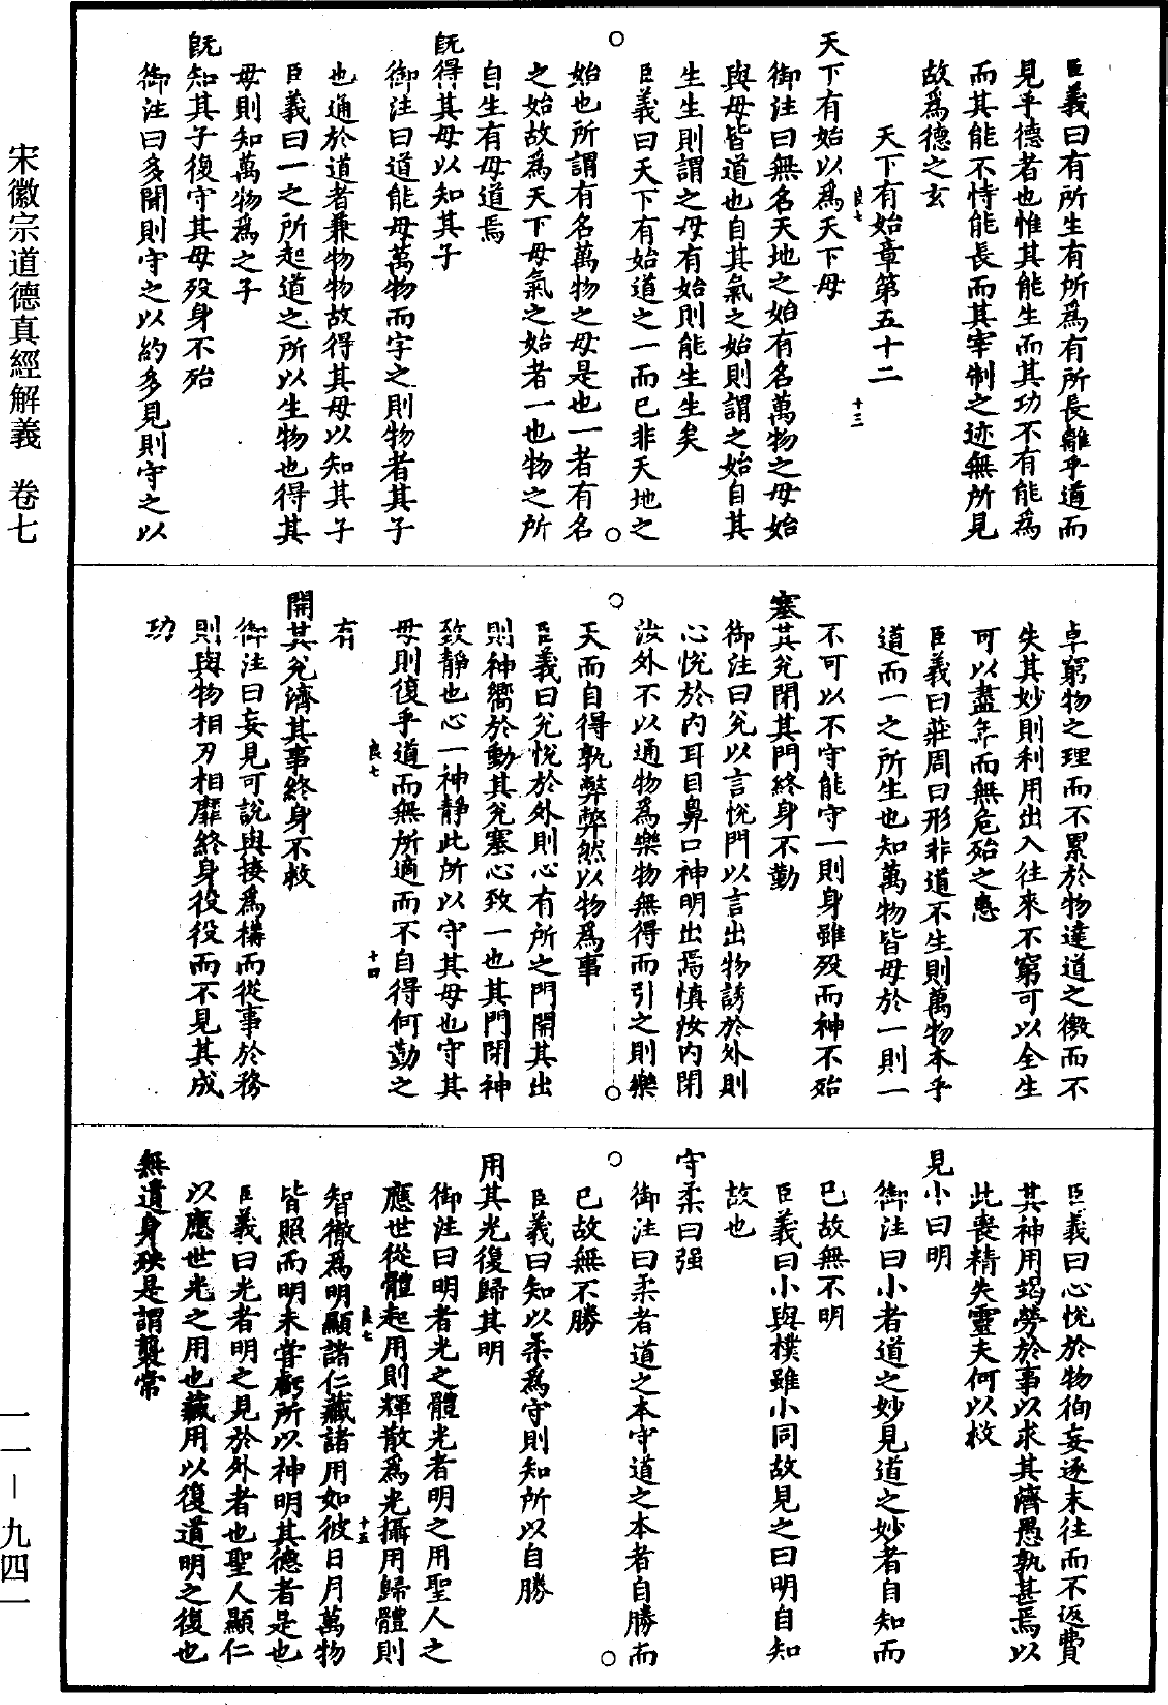 臣義曰有所生有所爲有所長離乎道而
見乎德者也惟其能生而其功不有能爲
而其能不恃能長而其宰制之迹無所見
故爲德之玄
天下有始章第五十二
良七
十三
天下有始以爲天下母
御注曰無名天地之始有名萬物之母始
與母皆道也自其氣之始則謂之始自其
生生則謂之母有始則能生生矣
臣義曰天下有始道之一而已非天地之
始也所謂有名萬物之母是也一者有名
之始故爲天下母氣之始者一也物之所
自生有母道焉
旣得其母以知其子
御注曰道能母萬物而字之則物者其子
也通於道者兼物物故得其母以知其子
臣義曰一之所起道之所以生物也得其
母則知萬物爲之子
旣知其子復守其母歿身不殆
御注曰多聞則守之以約多見則守之以
卓窮物之理而不累於物達道之徼而不
失其妙則利用出入往來不窮可以全生
可以盡年而無危殆之患
臣義曰莊周曰形非道不生則萬物本乎
道而一之所生也知萬物皆母於一則一
不可以不守能守一則身雖歿而神不殆
塞其兌閉其門終身不勤
御注曰兌以言悅門以言出物誘於外則
心悅於內耳目鼻口神明出焉慎汝內閉
汝外不以通物爲樂物無得而引之則樂
天而自得孰弊弊然以物爲事
臣義曰兌悅於外則心有所之門開其出
則神嚮於動其兌塞心致一也其門閉神
致靜也心一神靜此所以守其母也守其
母則復乎道而無所適而不自得何勤之
良七
十四
有
開其兌濟其事終身不救
御注曰妄見可說與接爲構而從事於務
則與物相刃相靡終身役役而不見其成
功
臣義曰心悅於物徇妄逐末往而不返費
其神用竭勞於事以求其濟愚孰甚焉以
此喪精失靈夫何以救
見小曰明
御注曰小者道之妙見道之妙者自知而
已故無不明
臣義曰小與樸雖小同故見之曰明自知
故也
守柔曰强
御注曰柔者道之本守道之本者自勝而
已故無不勝
臣義曰知以柔爲守則知所以自勝
用其光復歸其明
御注曰明者光之體光者明之用聖人之
應世從體起用則輝散爲光攝用歸體則
良七
十五
智徹爲明顯諸仁藏諸用如彼日月萬物
皆照而明未嘗虧所以神明其德者是也
臣義曰光者明之見於外者也聖人顯仁
以應世光之用也藏用以復道明之復也
無遺身殃是謂襲常
宋徽宗道德真經解義 卷七
一一—九四一